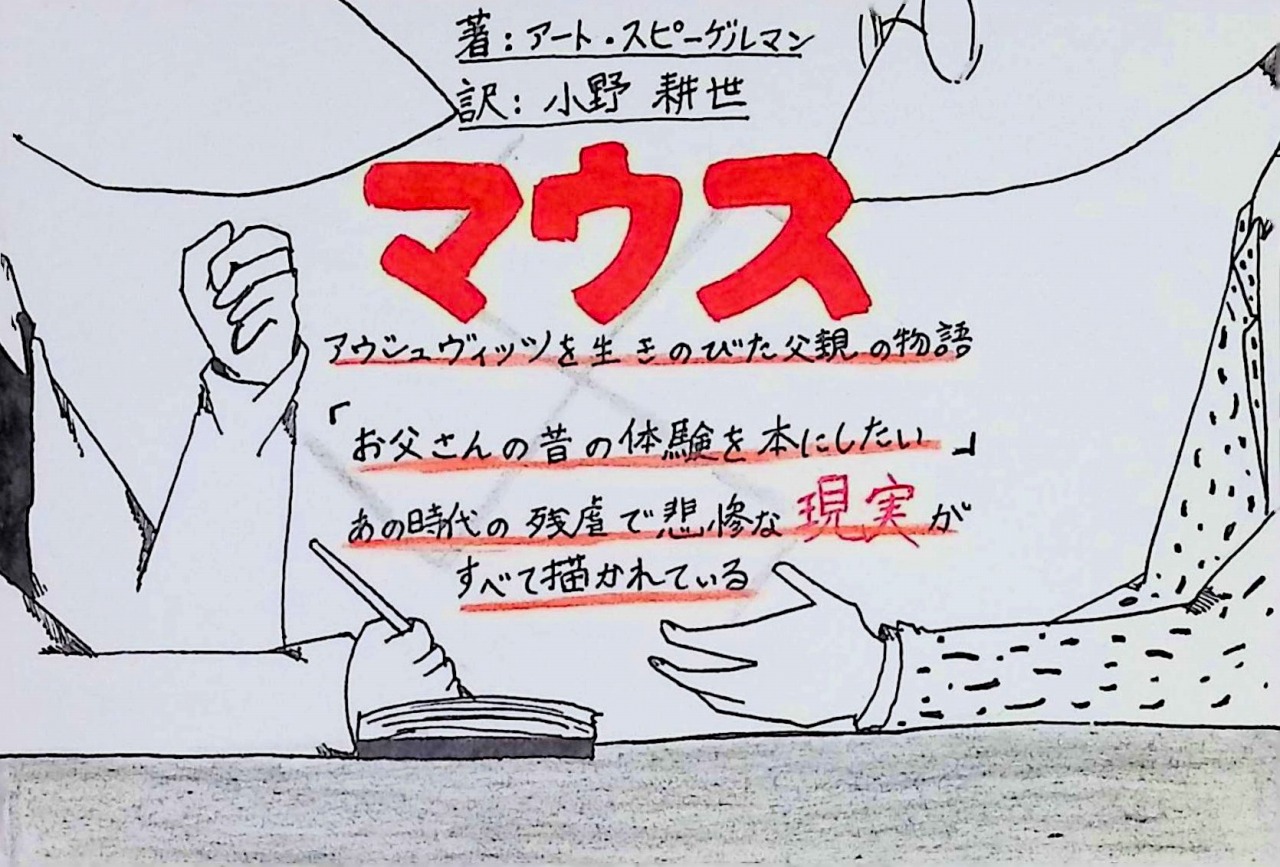 著：アート・スピーゲルマン
訳：小野 耕世
マウス
アウシュヴィッツを生きのびた父親の物語
「お父さんの昔の体験を本にしたい」
あの時代の残虐で悲惨な現実が
すべて描かれている